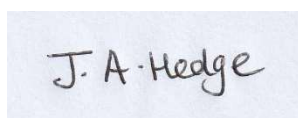 J. A. Hedge